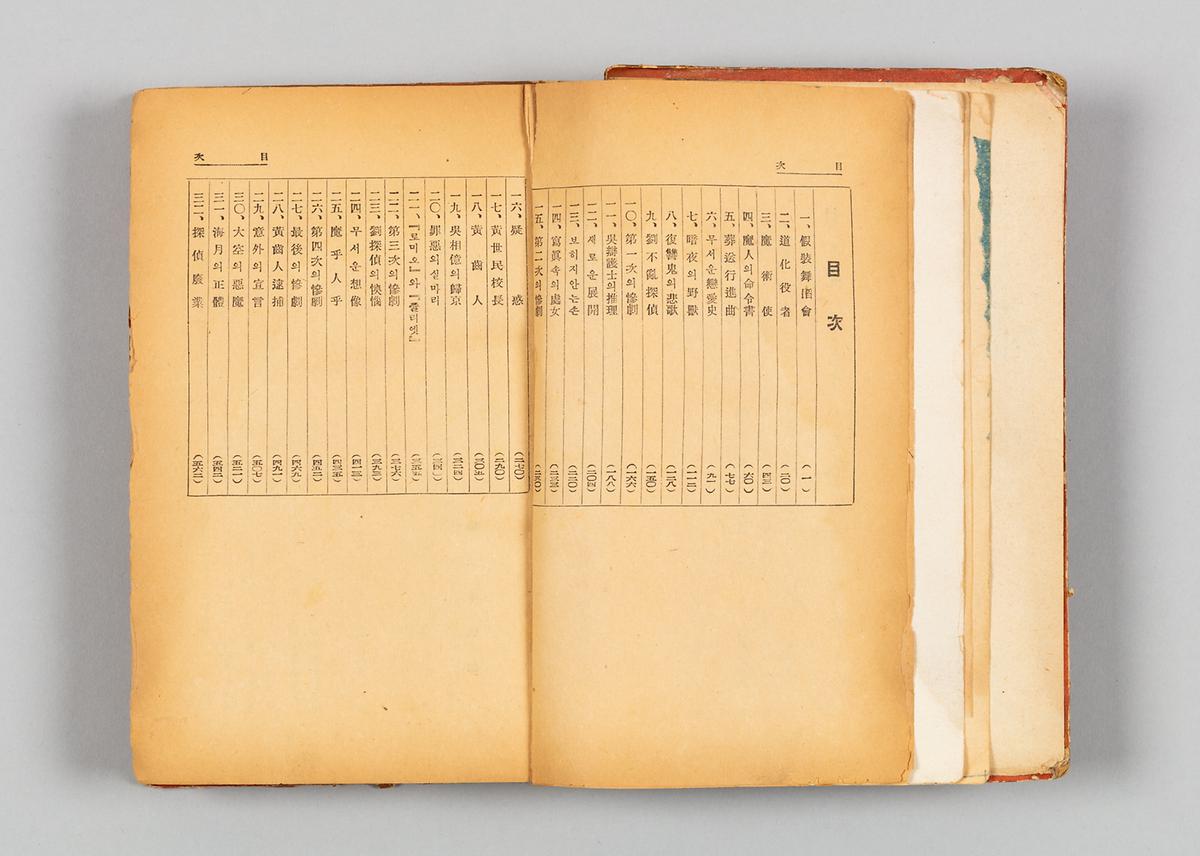 目次
目次
一、假裝舞蹈會 (一)
二、道化役者 (二〇)
三、魔術使 (四三)
四、魔人의命令書 (六〇)
五、葬送行進曲 (七七)
六、무서운戀愛史 (九一)
七、暗夜의野獸 (一一二)
八、復讐鬼의悲歌 (一二八)
九、劉不亂探偵 (一五〇)
一〇、第一次의慘劇 (一六六)
一一、吳辯護士의推理 (一八八)
一二、새로운展開 (二〇四)
一三、보히지안는손 (二二〇)
一四、寫眞속의處女 (二三三)
一五、第二次의慘劇 (二五〇)
目次
一六、疑惑 (二七〇)
一七、黃世民校長 (二九〇)
一八、黃齒人 (三〇五)
一九、吳相億의歸京 (三二四)
二〇、罪惡의실마리
二一、『로미오』와『쥴리엣』 (三五五)
二二、第三次의慘劇 (三七六)
二三、劉探偵의懊惱 (三九三)
二四、무서운想像 (四一三)
二五、魔乎人乎 (四三五)
二六、第四次의慘劇 (四五二)
二七、最後의慘劇 (四六九)
二八、黃齒人逮捕 (四九一)
二九、意外의宣言 (五〇七)
三〇、大空의惡魔 (五二一)
三一、海月의正體 (五四二)
三二、探偵廢業 (五六二)